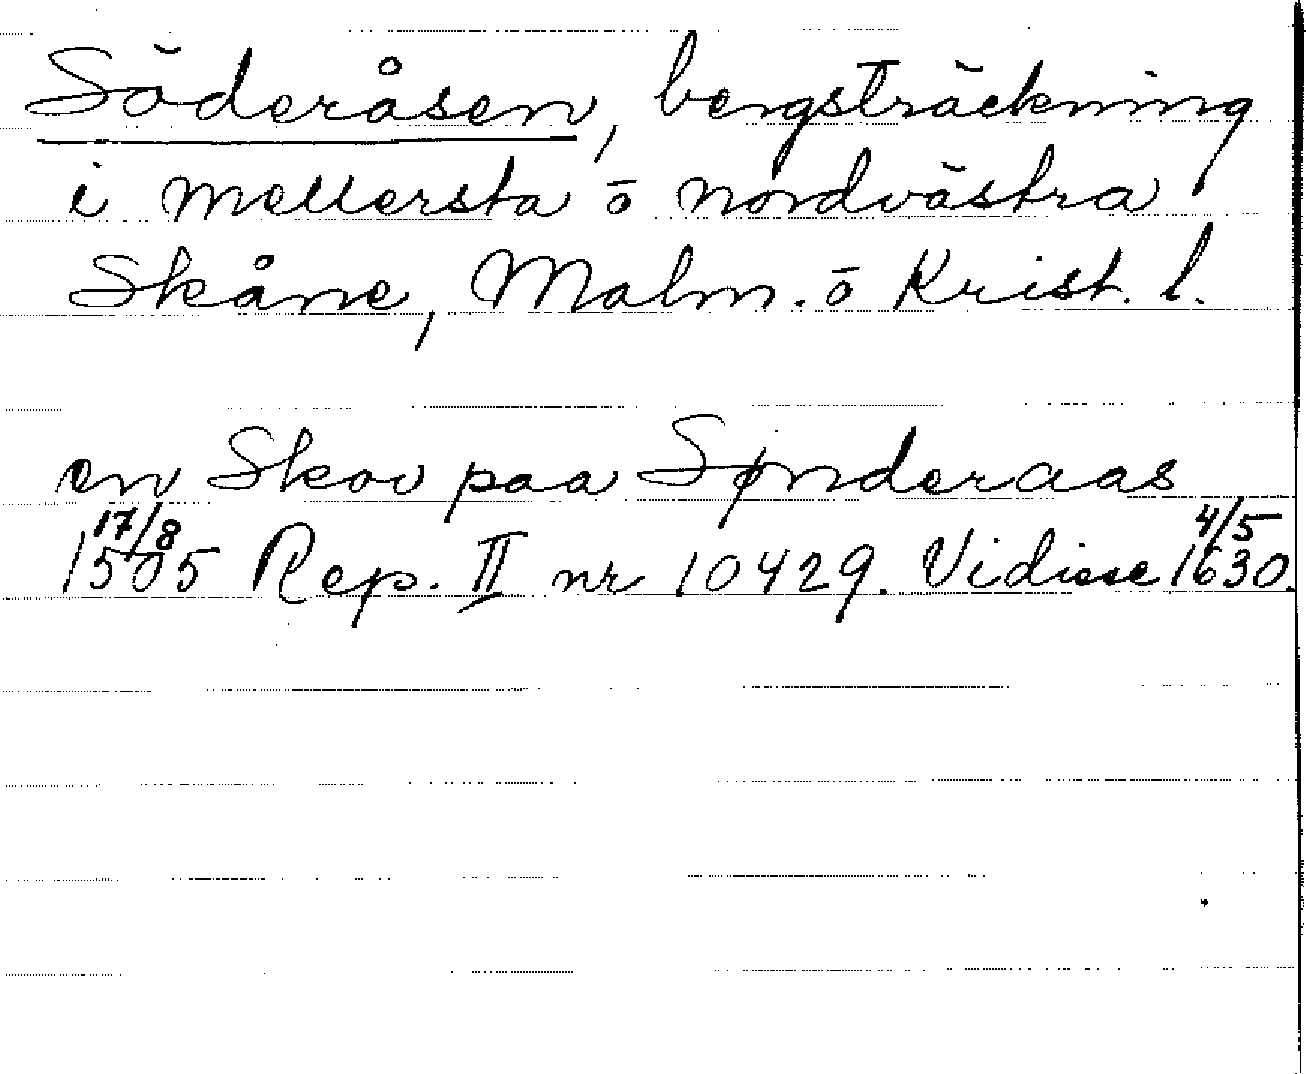 Söderåsen, bergsträckning
i mellersta ō nordvästra
Skåne, Malm. ō Krist. l.
en Skov paa Sønderaas
17/8 1505 Rep. II nr 10429. Vidisse 4/5 1630.